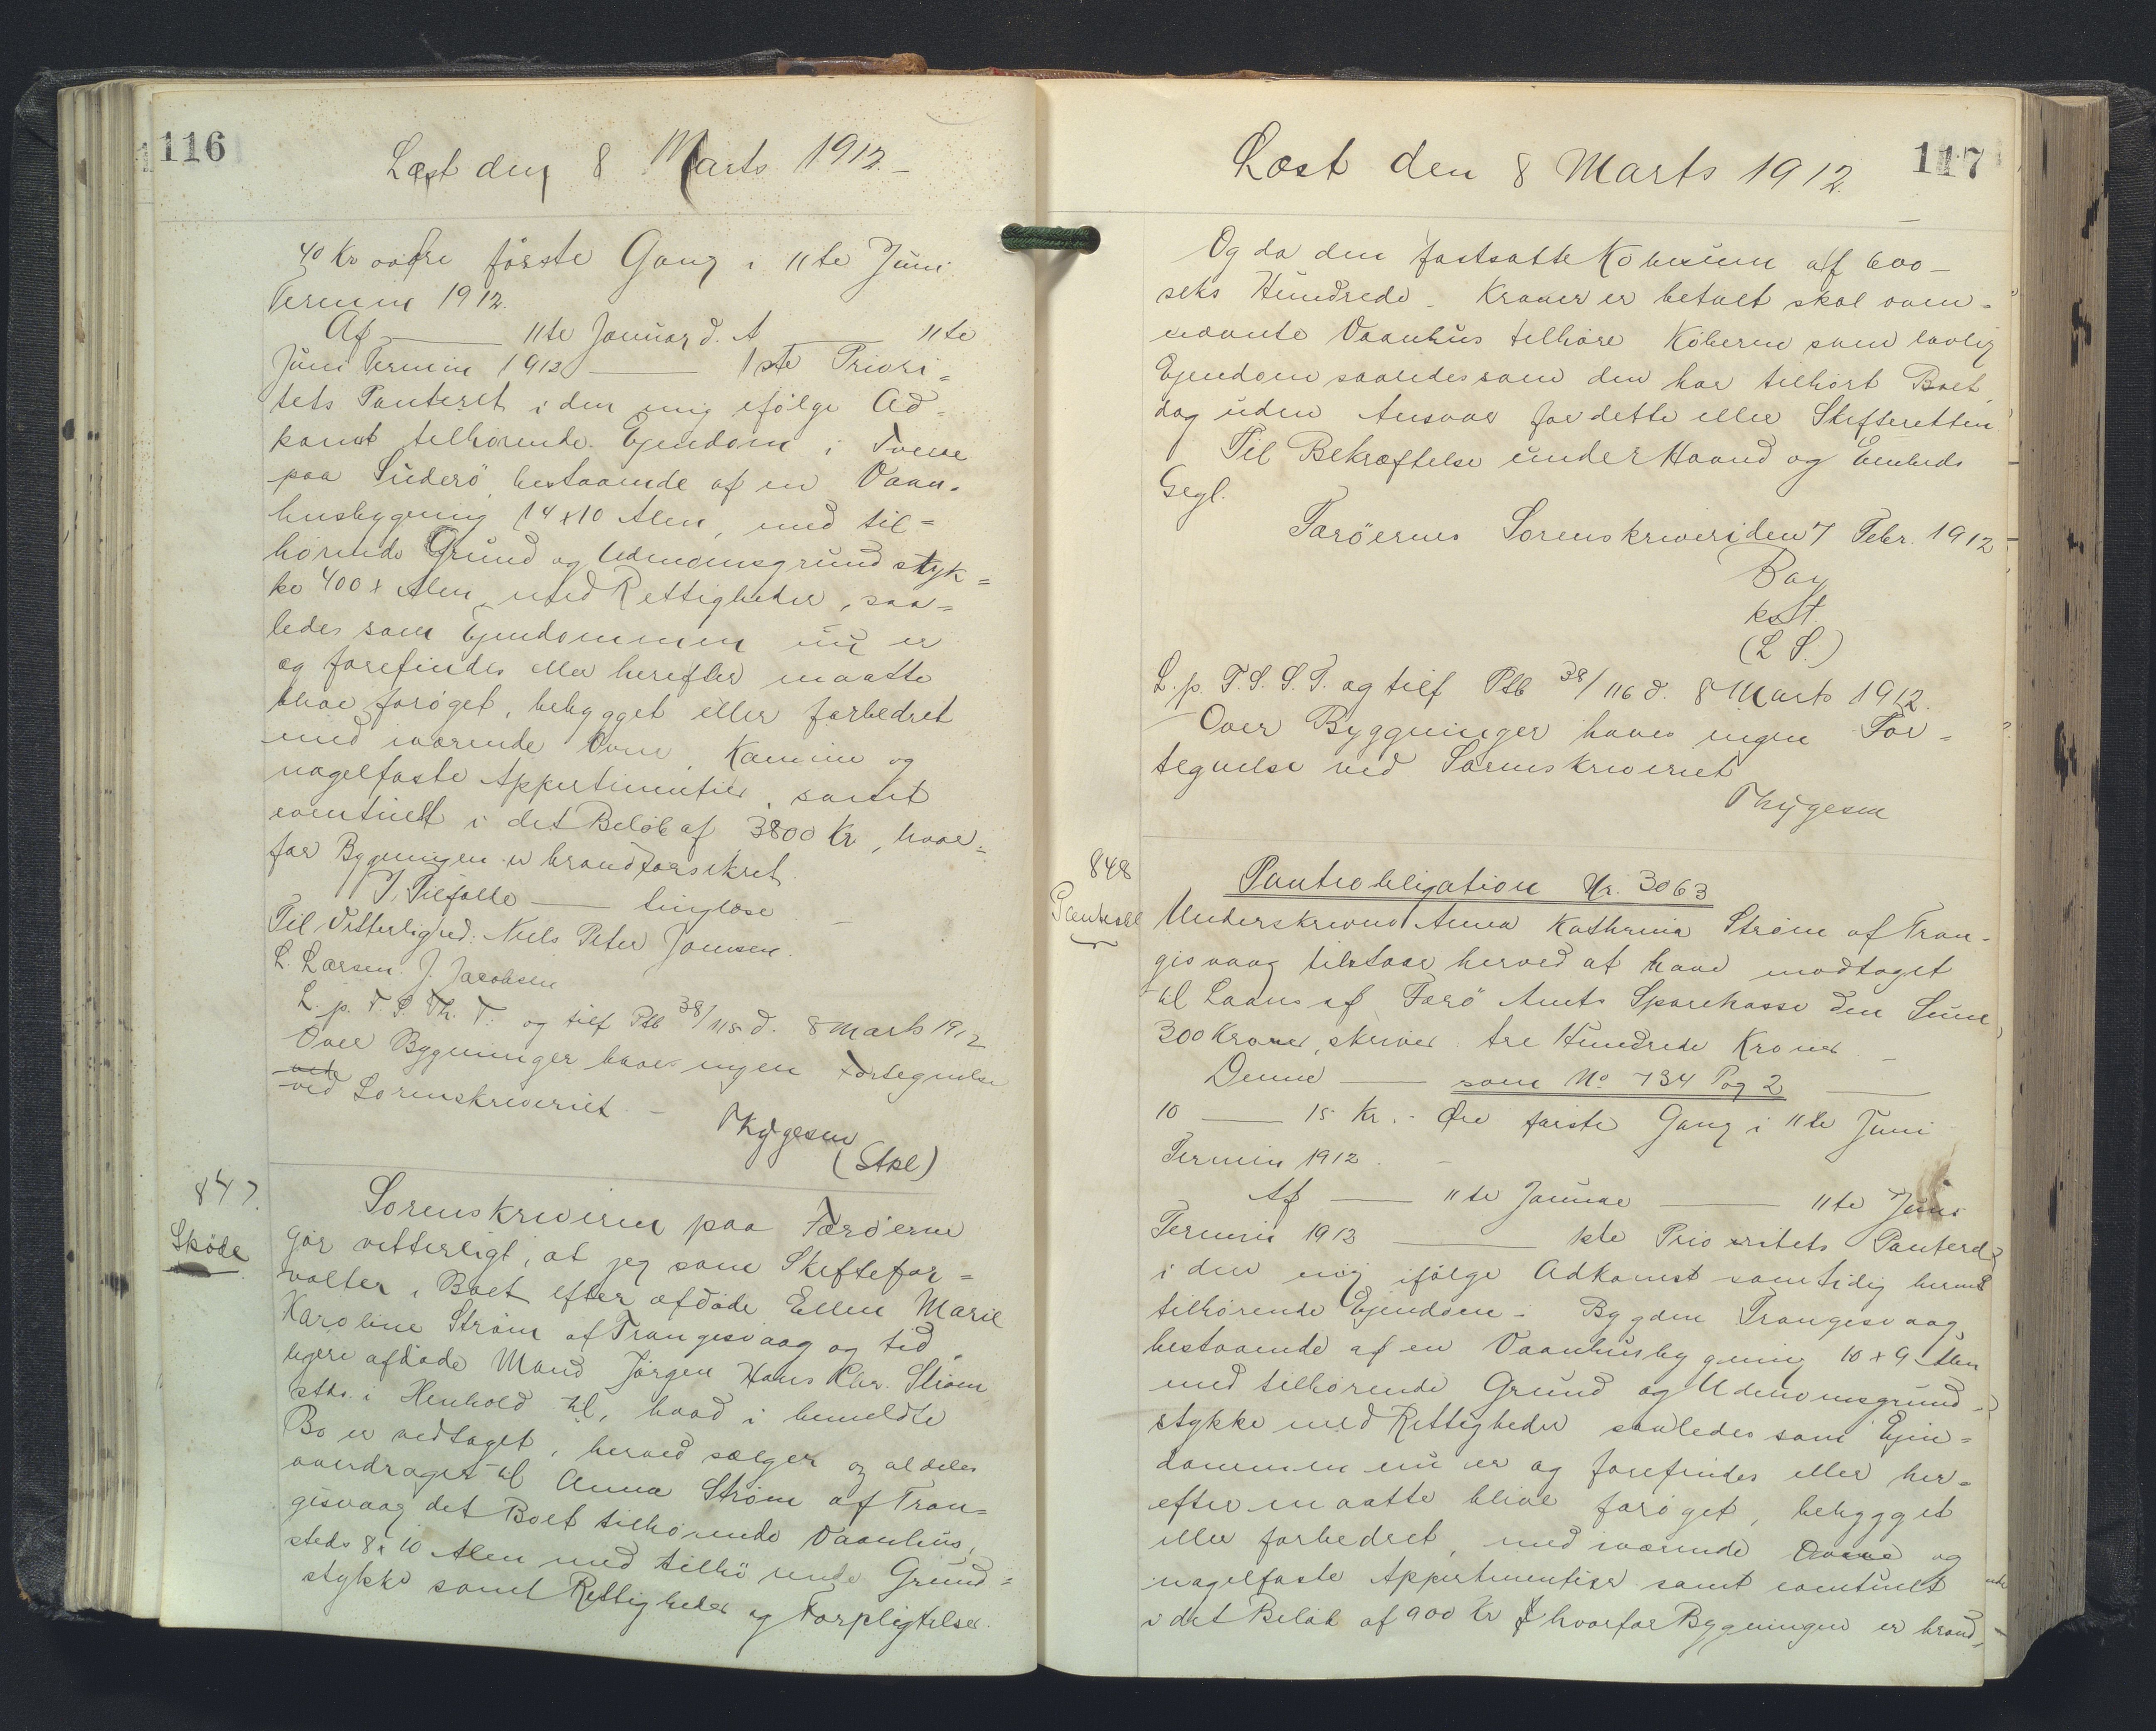 116
Læst den 8 Marts 1912. –
40 Kr ørefri første Gang i 11te Juni
Termin 1912.
Af —— 11te Januar d. A —— 11te
Juni Termin 1912 —— 1ste Priori=
tets Panteret i den mig ifølge Ad=
komst tilhørende Ejendom i
paa Suderö bestaaende af en Vaan-
husbygning 14 x 10 Alen, med til=
hørende Grund og Udenomsgrundstyk=
ke 400 x Alen, med Rettigheder, saa=
ledes som Ejendommen nu er
og forefindes eller herefter maatte
blive forøget, bebygget eller forbedret
med værende Ovne, Kamine og
nagelfaste Appertinentier, samt
eventuelt i det Beløb af 3800 Kr, hvor=
for Bygningen er brandforsikret.
I Tilfælde —— tinglæse
Til Vitterlighed: Niels Peter Joensen.
L. Larsen. J. Jacobsen
L. p. T. S. Th. T. og tilf Ptb 38/115 d. 8 Marts 1912
Over Bygninger haves ingen Fortegnelse
ved Sorenskriveriet. –
Thygesen
(Stpl)
847.
Skøde
Sorenskriveren paa Færöerne
gör vitterligt, at jeg som Skiftefor=
valter i Boet efter afdöde Ellen Marie
Karoline Ström af Trangisvaag og tid
ligere afdöde Mand Jörgen Hans Chr. Ström
stds. i Henhold til, hvad i bemeldte
Bo er vedtaget, herved sælger og aldeles
overdrager til Anna Ström af Tran=
gisvaag det Boet tilhörende Vaanhus,
steds 8 x 10 Alen med tilhörende Grund=
stykke samt Rettigheder og Forpligtelser.
117
Læst den 8 Marts 1912
Og da den fastsatte Købesum af 600 –
seks Hundrede – Kroner er betalt skal oven=
nævnte Vaanhus tilhøre Køberen som lovlig
Ejendom saaledes som den har tilhørt Boet,
dog uden Ansvar for dette eller Skifteretten.
Til Bekræftelse under Haand og Embeds
Segl.
Færöernes Sorenskriveri den 7 Febr. 1912
Bay
kst.
(L S.)
L. p. T. S. S. T. og tilf Ptb 38/116 d. 8 Marts 1912.
Over Byggninger haves ingen For=
tegnelse ved Sorenskriveriet
Thygesen
848
Pantobl
Panteobligation Nr. 3063
Underskrevne Anna Kathrina Strøm af Tran-
gisvaag tilstaar herved at have modtaget
til Laans af Færö Amts Sparekasse den Sum
300 Kroner, skriver tre Hundrede Kroner –
Denne —— som No 734 Pag 2 ——
10 —— 15 Kr. – Øre første Gang i 11te Juni
Termin 1912. –
Af —— 11te Januar —— 11te Juni
Termin 1913 —— 1ste Prioritets Panteret
i den mig ifølge Adkomst samtidig hermed
tilhørende Ejendom i Bygden Trangisvaag,
bestaaende af en Vaanhusbygning 10 x 9 Alen
med tilhørende Grund og Udenomsgrund-
stykke med Rettigheder saaledes som Ejen=
dommen nu er og forefindes eller her=
efter maatte blive forøget, bebygget
eller forbedret, med værende Ovne og
nagelfaste Appertinentier samt eventuelt
i det Beløb af 900 Kr hvorfor Bygningen er brand=